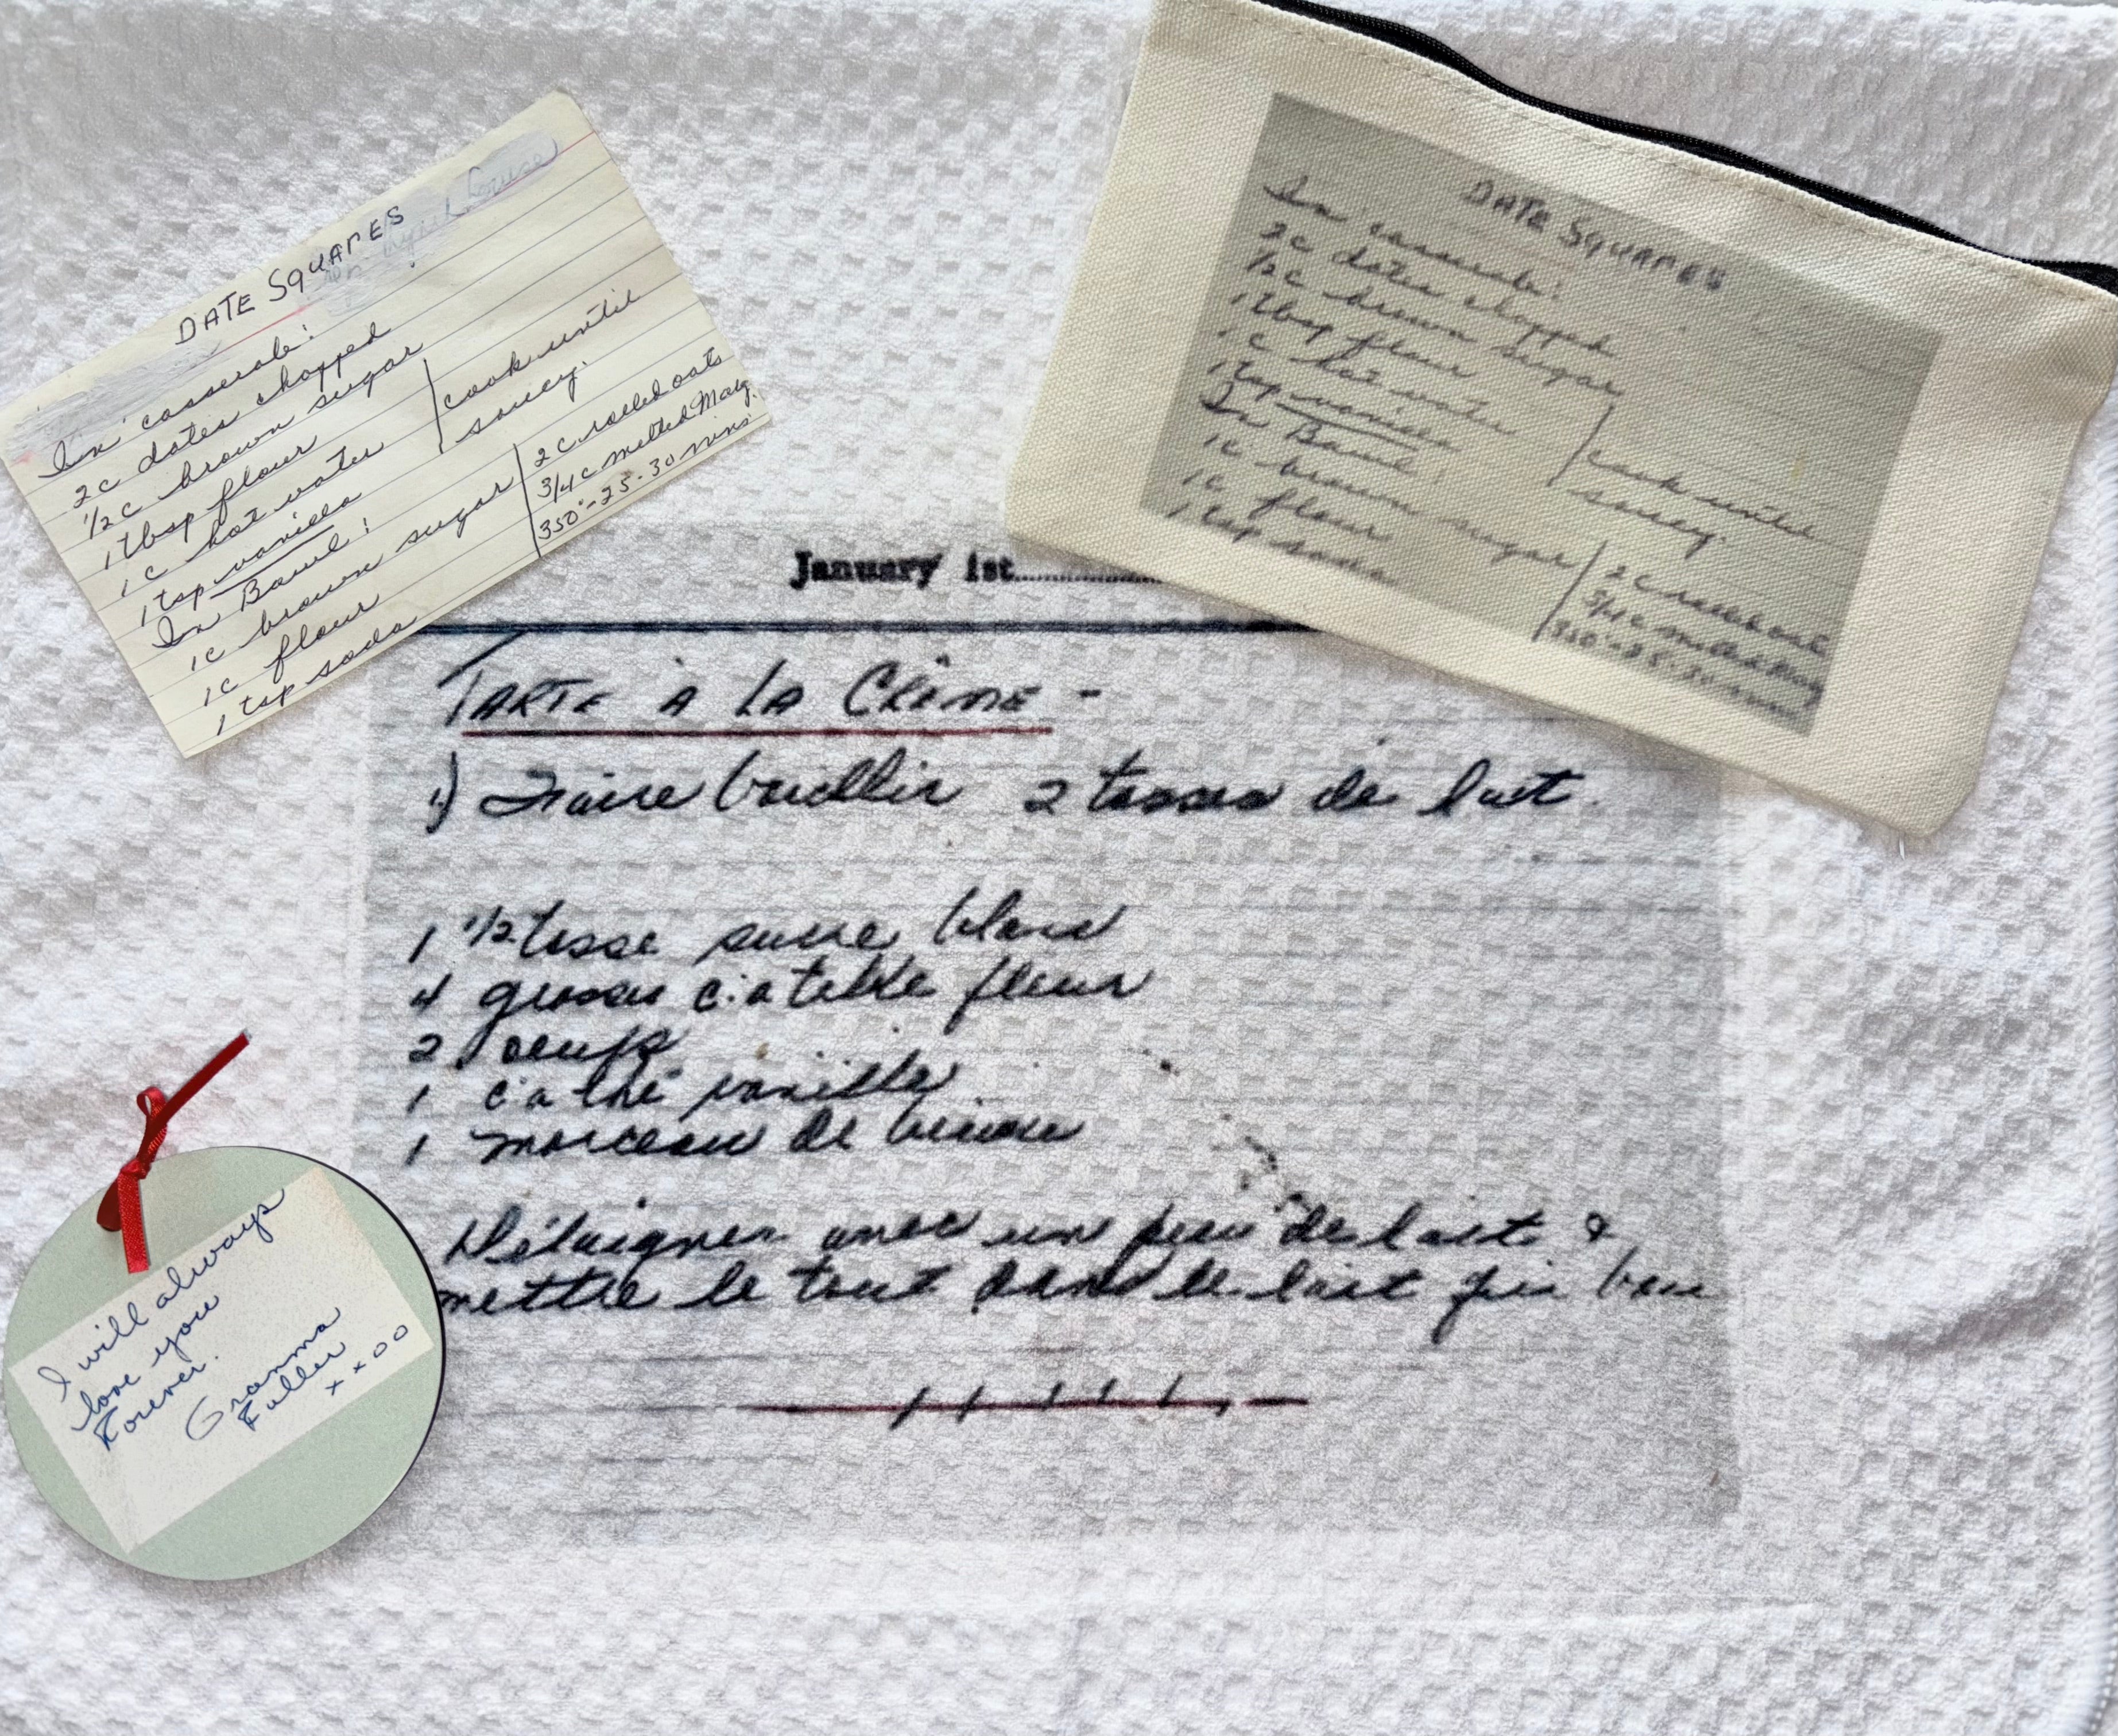 DATE SQUARES
In casserole:
2c dates chopped
1/2c brown sugar
1 tbsp flour
1 c hot water
1 tsp vanilla
cook until
saucy.
In Bowl:
1c brown sugar
1c flour
1 tsp soda
2c rolled oats
3/4c melted Marg.
350°-25-30 mins
DATE SQUARES
In casserole:
2c dates chopped
1/2c brown sugar
1 tbsp flour
1 c hot water
1 tsp vanilla
cook until
saucy.
In Bowl:
1c brown sugar
1c flour
1 tsp soda
2c rolled oats
3/4c melted Marg
350°-25-30 mins
January 1st
TARTE À LA CRÈME -
1) Faire bouillir 2 tasses de lait.
1 1/2 tasse sucre blanc
4 grosses c. a table fleur
2 oeufs
1 c a thé vanille
1 morceau de beurre
avec un peu de lait &
mettre le tout dans le lait qui
I will always
love you
Forever.
Gramma
Fuller
xxoo